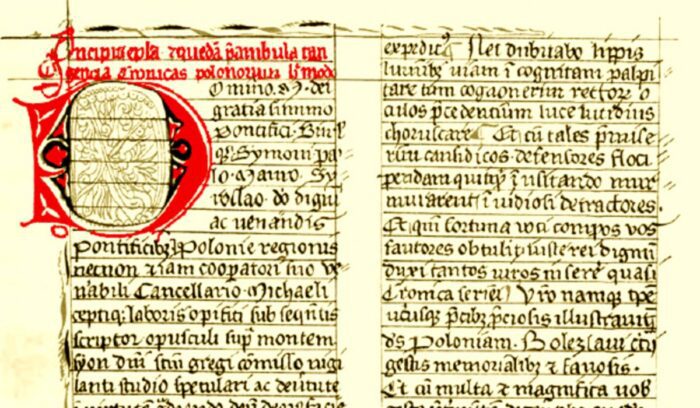 Incipit epla et quedā p̄ambula tan
gencia Cronicas polonorum
Domino. M. dei
gratia summo
pontifici. Simul
q3 Symoni pa
lo. Mauro. Sy
roslao. do dignis
ac venandis
Pontificib3 Polonie regionis
necnon etiam coopatori suo ve
nabili Cancellario. Michaeli
ceptiq3 laboris opifici sub seqntis
scriptor opusculi sup̄ montem
syon dm̄i stm̄ gregi cōmisso vigi
lanti studio speculari ac de virtute
expeditꝰ Nec dubitabo lippis
luminib3 viam incognitam palpi
tare tam cognouerim rector o
culos p̄cedencium luce lucidius
choruscare. Et cū tales p̄mise
rim causidicos. defensores floci
pendam quitq̄ inuisitando mur
murauerīt inuidiosi detractores.
Et qm̄ fortuna uoti compos vos
fautores obtulit iuste rei dignū
duxi tantos viros inserere quasi
Cronica seriei. Vrō namque tpe
vrisque p̄cib3 p̄ciosis illustrauit
ds̄ Poloniam. Bolezlaui tcii
gestis memorialib3 et famosis.
Et cū multa et magnifica uob